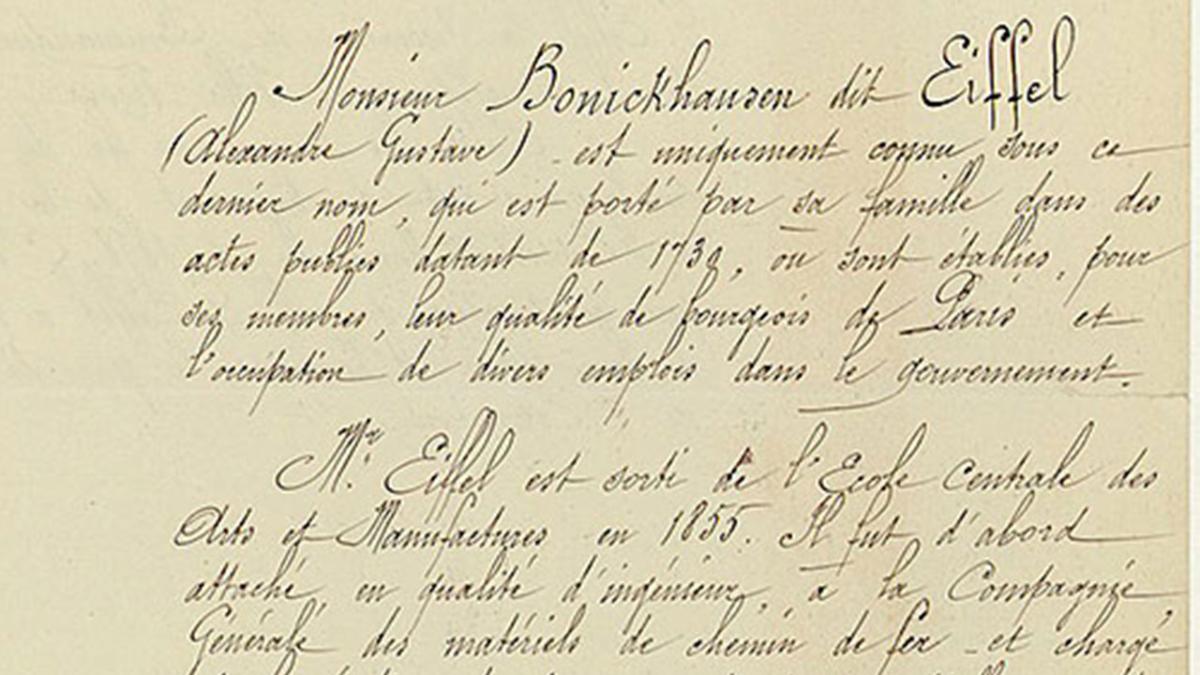 Monsieur Bonickhausen dit Eiffel
(Alexandre Gustave) est uniquement connu sous ce
dernier nom, qui est porté par sa famille dans des
actes publics datant de 1730, où sont établies, pour
ses membres, leur qualité de bourgeois de Paris et
l'occupation de divers emplois dans le gouvernement.
Mr. Eiffel est sorti de l'Ecole Centrale des
Arts et Manufactures en 1855. Il fut d'abord
attaché, en qualité d'ingénieur, à la Compagnie
Générale des matériels de chemin de fer et chargé